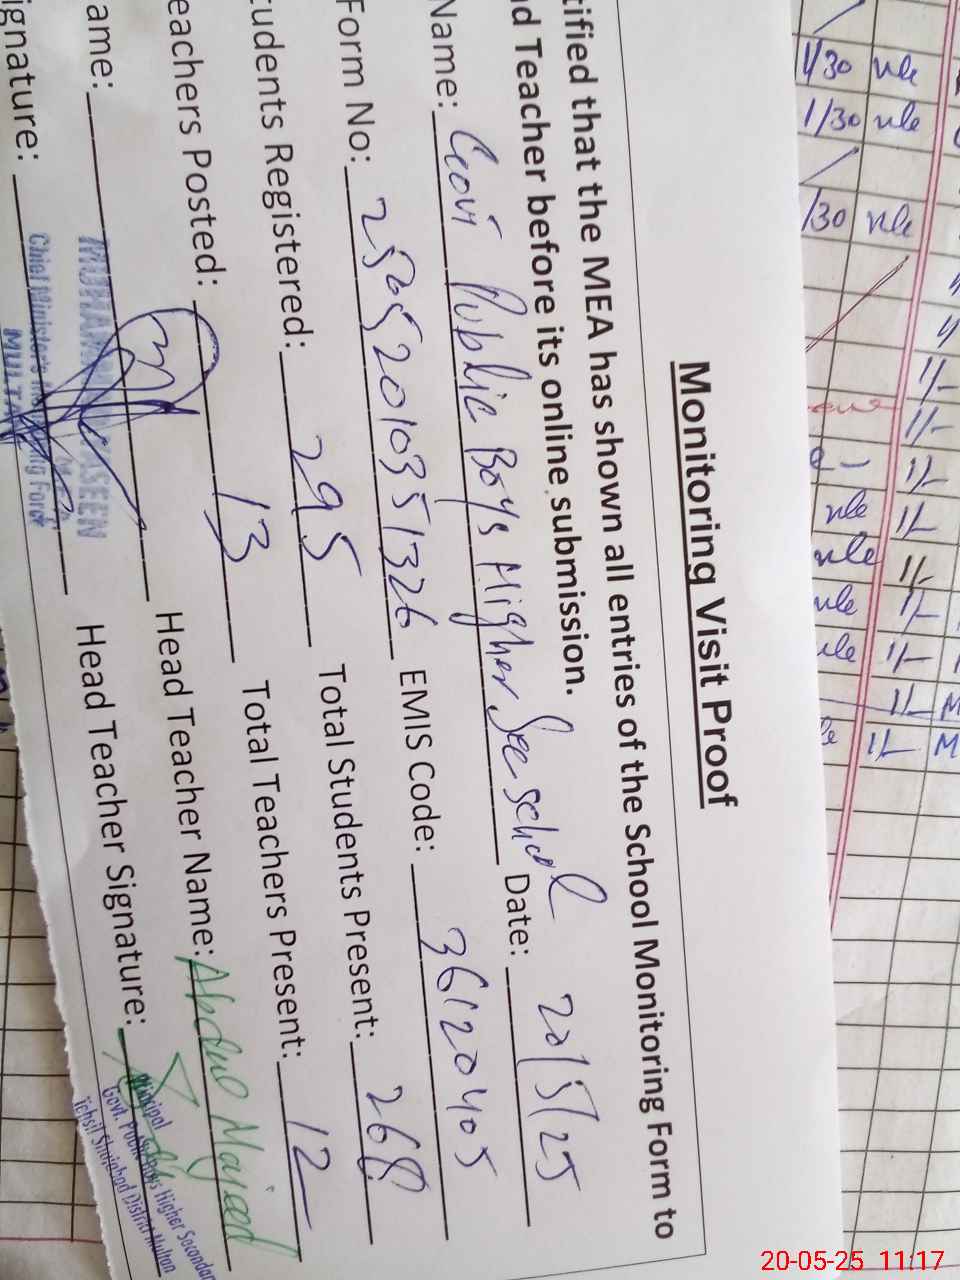 Monitoring Visit Proof
tified that the MEA has shown all entries of the School Monitoring Form to
d Teacher before its online submission.
Name: Govt Public Boys Higher Sec School Date: 20/5/25
Form No: 25052010351326 EMIS Code: 36120405
tudents Registered: 295 Total Students Present: 268
eachers Posted: 13 Total Teachers Present: 12
ame: Head Teacher Name: Abdul Majeed
ignature: Head Teacher Signature:
YASEEN
Chief Minister's Monitoring Force
MULTAN
Principal
Govt. Public Boys Higher Secondar
Tehsil Shujabad District Multan
1/30 nle
1/30 nle
/30 nle
20-05-25 11:17